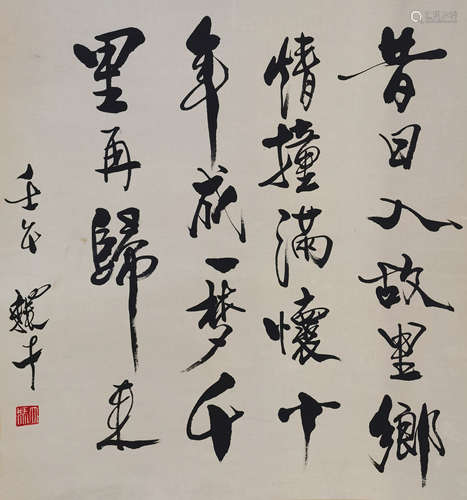 昔日入故里鄉
情撞滿懷十
年成一梦千
里再歸来
壬午